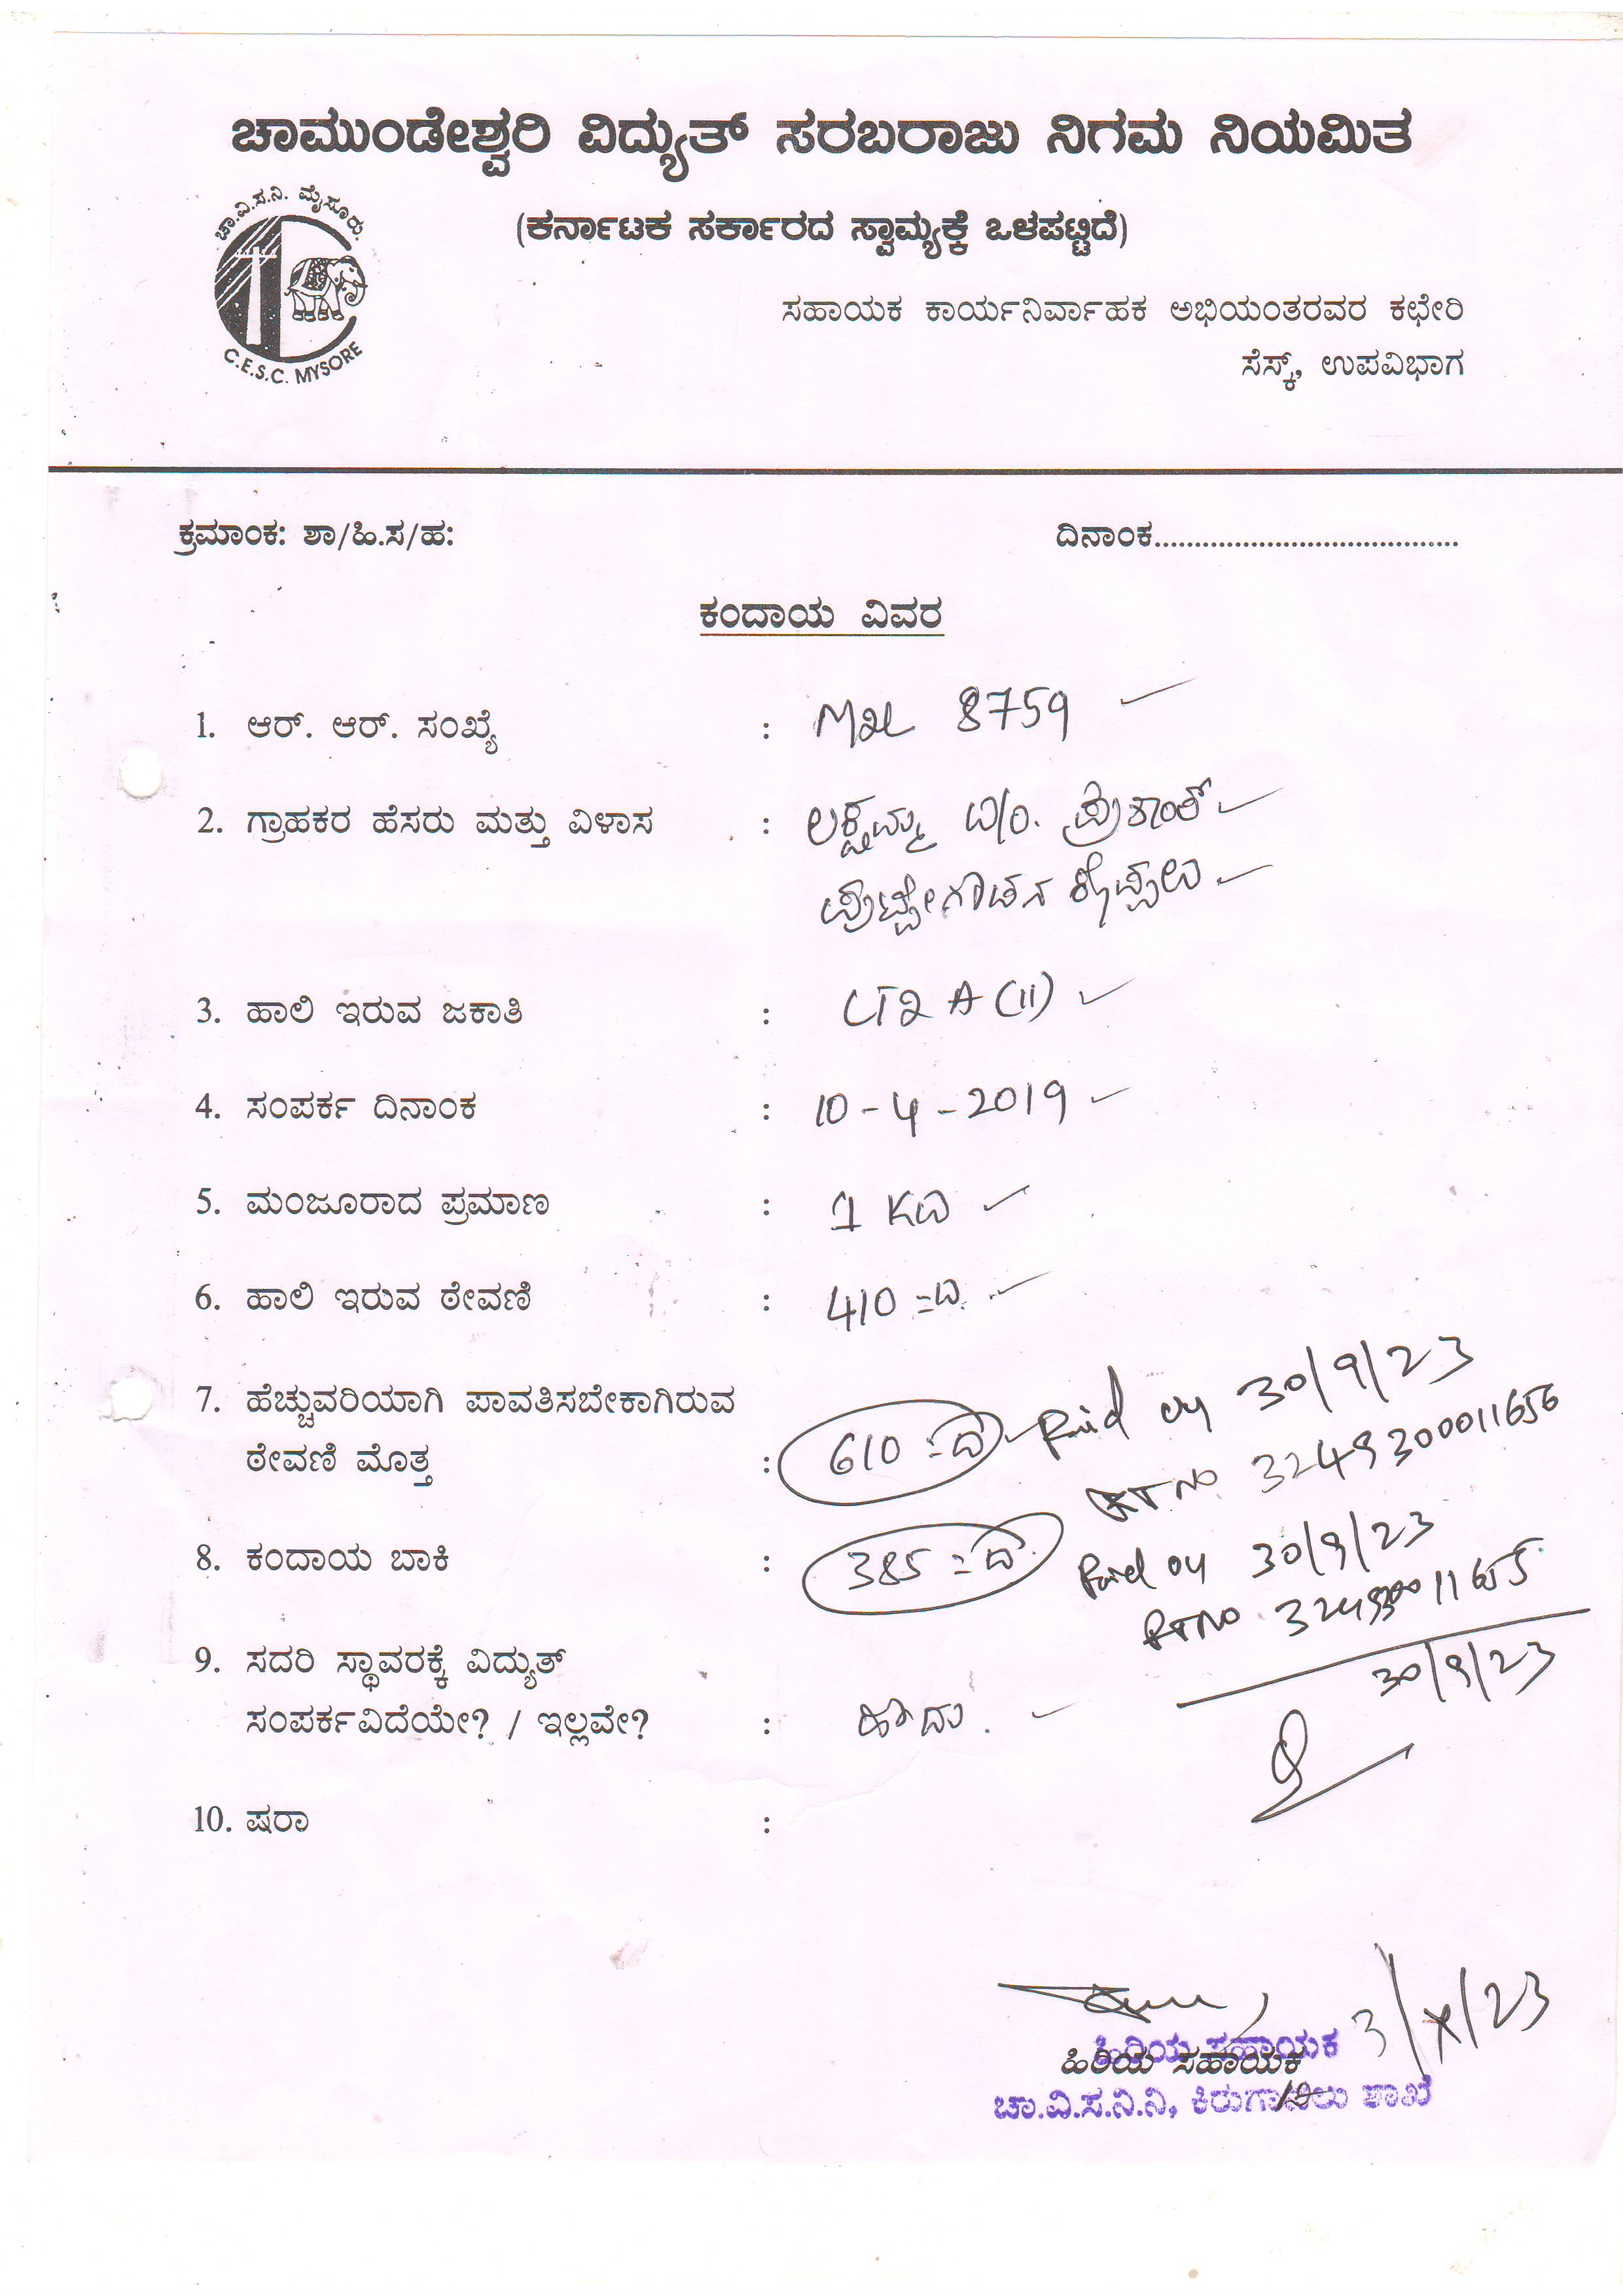 ಚಾಮುಂಡೇಶ್ವರಿ ವಿದ್ಯುತ್ ಸರಬರಾಜು ನಿಗಮ ನಿಯಮಿತ
ಚಾ.ವಿ.ಸ.ನಿ. ಮೈಸೂರು.
C.E.S.C. MYSORE
(ಕರ್ನಾಟಕ ಸರ್ಕಾರದ ಸ್ವಾಮ್ಯಕ್ಕೆ ಒಳಪಟ್ಟಿದೆ)
ಸಹಾಯಕ ಕಾರ್ಯನಿರ್ವಾಹಕ ಅಭಿಯಂತರವರ ಕಛೇರಿ
ಸೆಸ್ಕ್, ಉಪವಿಭಾಗ
ಕ್ರಮಾಂಕ: ಶಾ/ಹಿ.ಸ/ಹ: ದಿನಾಂಕ......................................
ಕಂದಾಯ ವಿವರ
1. ಆರ್. ಆರ್. ಸಂಖ್ಯೆ : 8759
2. ಗ್ರಾಹಕರ ಹೆಸರು ಮತ್ತು ವಿಳಾಸ : ಲಕ್ಷ್ಮಮ್ಮ ಪ್ರಶಾಂತ್
ಪುಟ್ಟೇಗೌಡನ ಕೊಪ್ಪಲು
3. ಹಾಲಿ ಇರುವ ಜಕಾತಿ : LT2 A (11)
4. ಸಂಪರ್ಕ ದಿನಾಂಕ : 10-4-2019
5. ಮಂಜೂರಾದ ಪ್ರಮಾಣ : 1 KW
6. ಹಾಲಿ ಇರುವ ಠೇವಣಿ : 410=00
7. ಹೆಚ್ಚುವರಿಯಾಗಿ ಪಾವತಿಸಬೇಕಾಗಿರುವ
ಠೇವಣಿ ಮೊತ್ತ : 610=00 Paid on 30/9/23
RT NO 3249300011656
8. ಕಂದಾಯ ಬಾಕಿ : 385=00 Paid on 30/9/23
RT NO
9. ಸದರಿ ಸ್ಥಾವರಕ್ಕೆ ವಿದ್ಯುತ್ 30/9/23
ಸಂಪರ್ಕವಿದೆಯೇ? / ಇಲ್ಲವೇ? : ಹೌದು.
10. ಷರಾ :
3/X/23
ಹಿರಿಯ ಸಹಾಯಕ
ಹಿರಿಯ ಸಹಾಯಕ
ಚಾ.ವಿ.ಸ.ನಿ.ನಿ, ಕಿರುಗಾವಲು ಶಾಖೆ